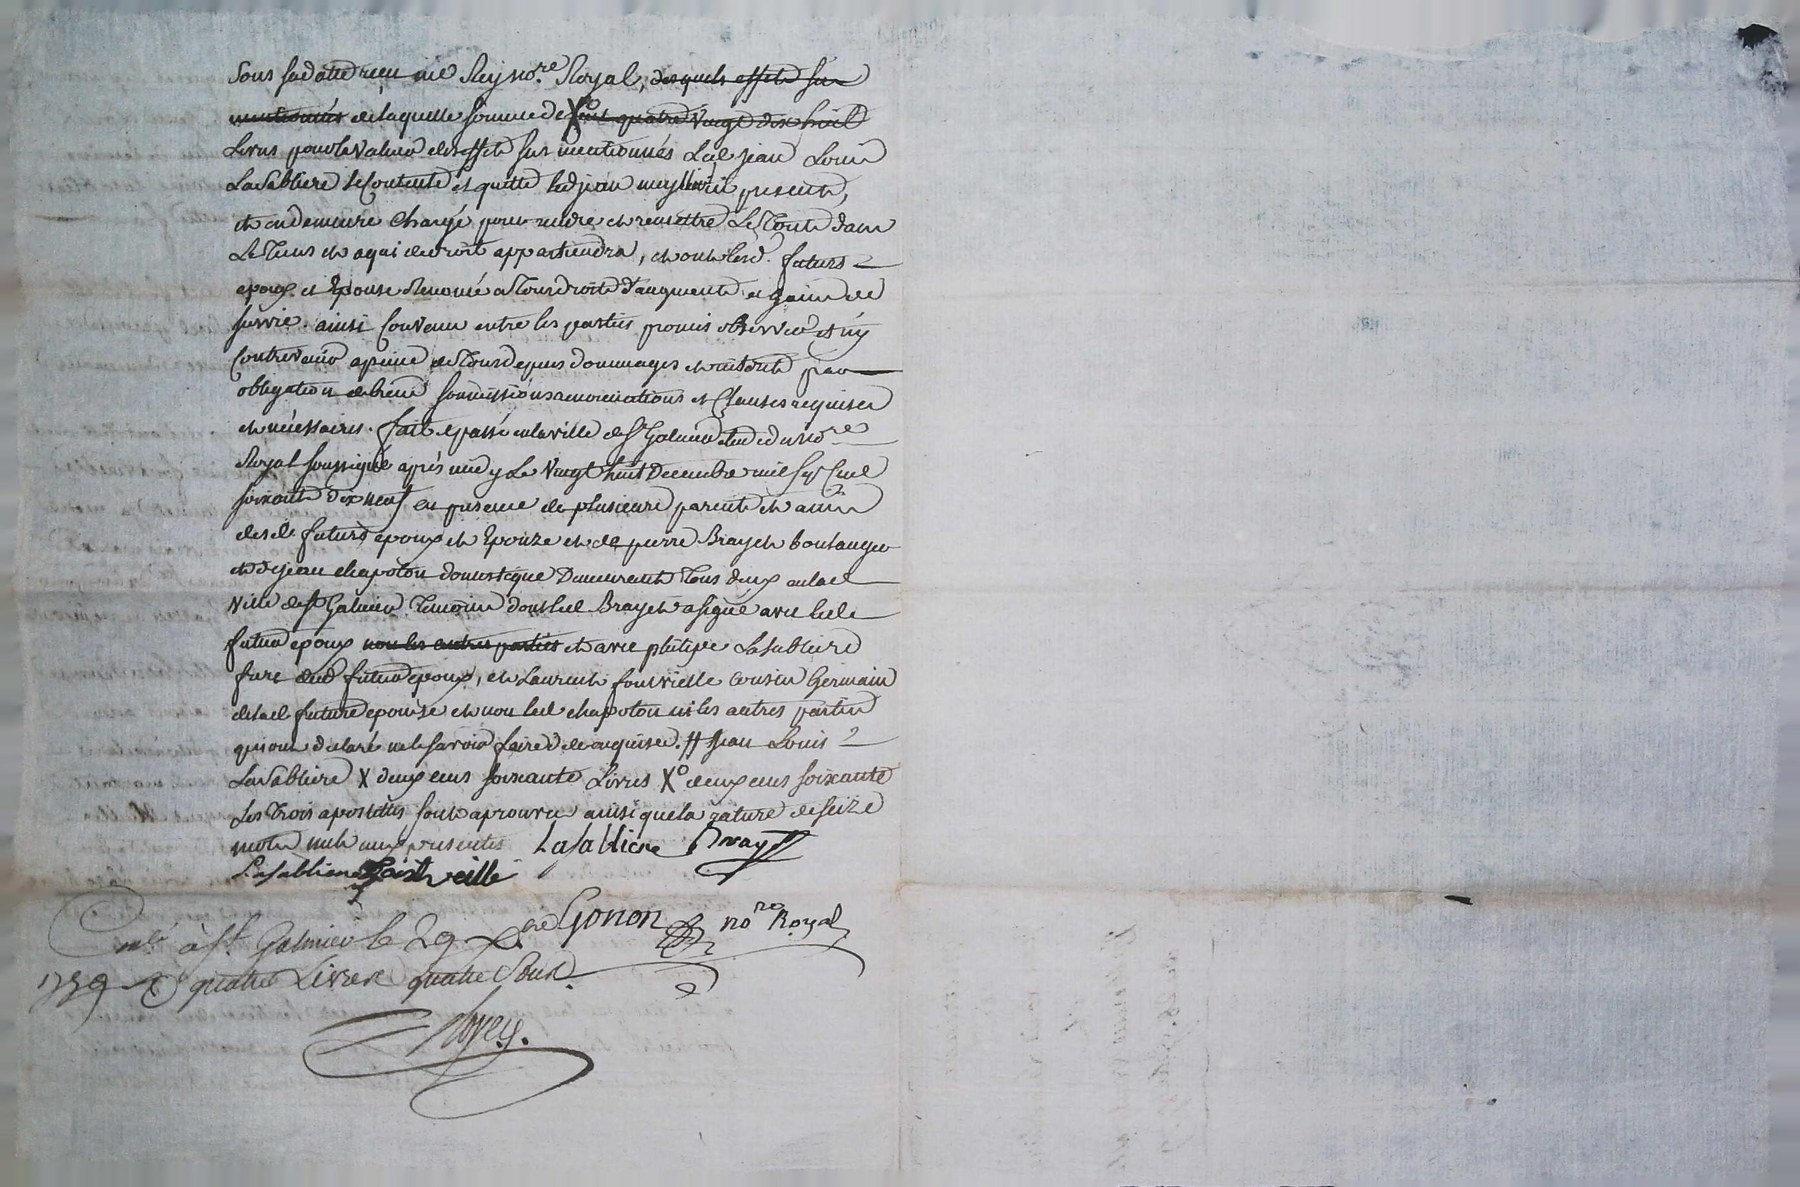 Sous sad datte reçu me Rey no.re Royal, desquels effets sus
mentionnés de laquelle somme de X° cent quatre vingt dix huit
Livres pour la valeur des effets sus mentionnés Led jean Louis
LaSabliere se Contente et quitte led jean present,
et en demeure Chargé pour rendre et remettre Le Tout dans
Le Tems et a qui de droit appartiendra, et ont lesd. futurs
epoux et Epouse Renoncé a Tous droits d'augment et gain de
survie. ainsi Convenu entre les parties promis observer et n'y
Contrevenir a peine de Tous depens dommages et interets par
obligation de biens soumissions renonciations et Clauses requises
et nécessaires. fait et passé en la ville de St Galmier etude du no.re
Royal soussigné après midy Le vingt huit Decembre mil sept Cent
soixante dix neuf en presence de plusieurs parents et amis
desd. futurs epoux et Epouze et de pierre Brayet boulanger
et de jean chapoton domestique Demeurent Tous deux en lad
ville de St Galmier Temoins dont led. Brayet a signé avec led.
futur epoux non les autres parties et avec philipe LaSabliere
frere dud futur epoux, et Laurent fontvielle cousin Germain
de lad future epouse et non led chapoton ni les autres parties
qui ont declaré ne le savoir faire de ce enquises. # jean Louis
LaSabliere X deux cens soixante Livres X° deux cens soixante
Les Trois apostilles sont aprouvées ainsi que la rature de seize
mots nuls aux presentes LaSabliere Brayet
LaSabliere
Gonon no.re Royal
à St. Galmier le 29 X.bre
quatre Livres quatre Sous.